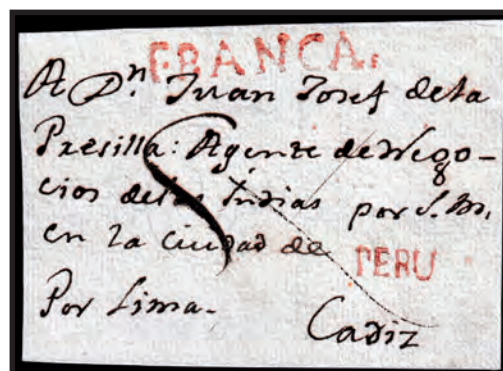 FRANCA.
A Dn. Juan Josef de la
Presilla: Agente de Nego-
cios de las Indias por S.M.
en la ciudad de
PERU
Por Lima.
Cadiz